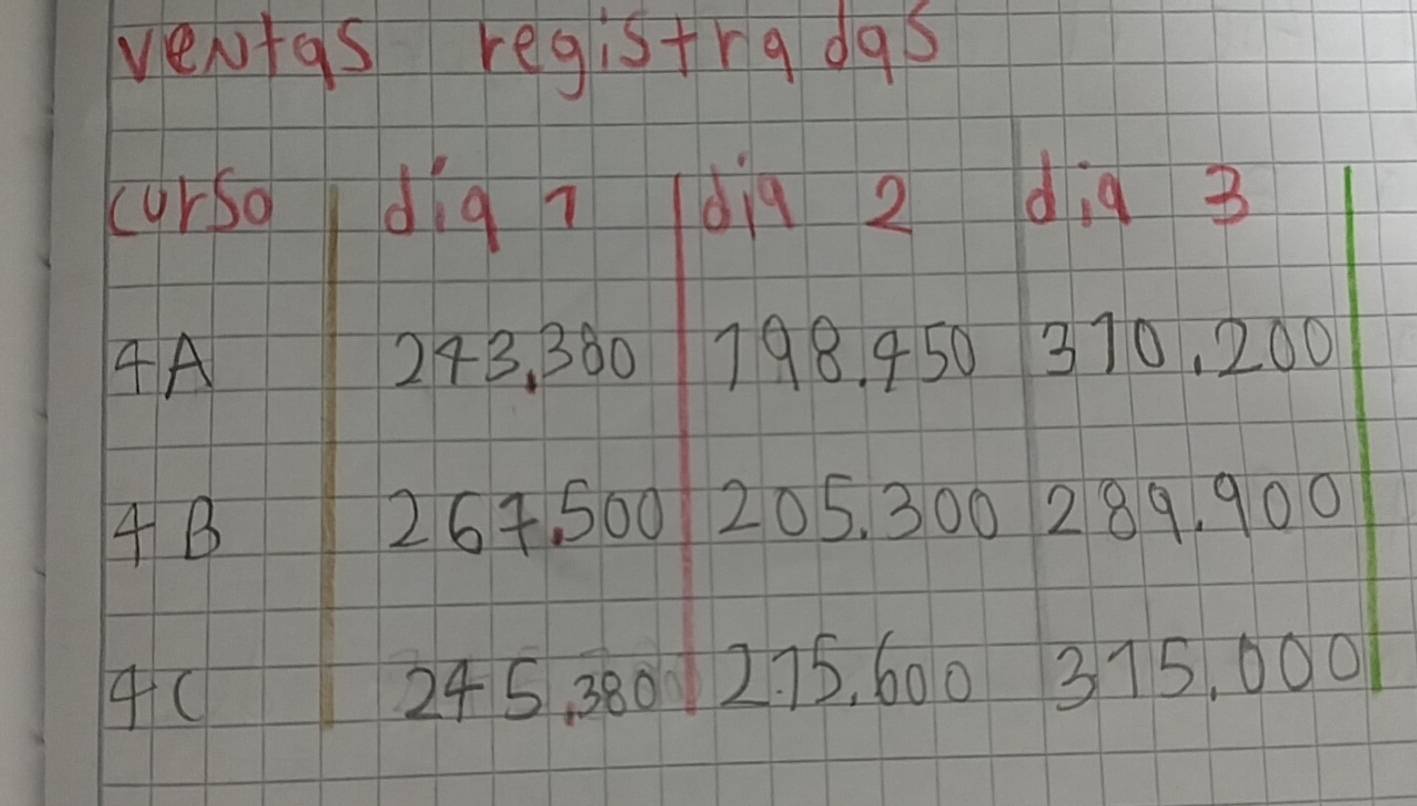 ventas registradas
curso día 1 día 2 día 3
4A 243.380 198.450 310.200
4B 267.500 205.300 289.900
4C 245.380 215.600 315.000